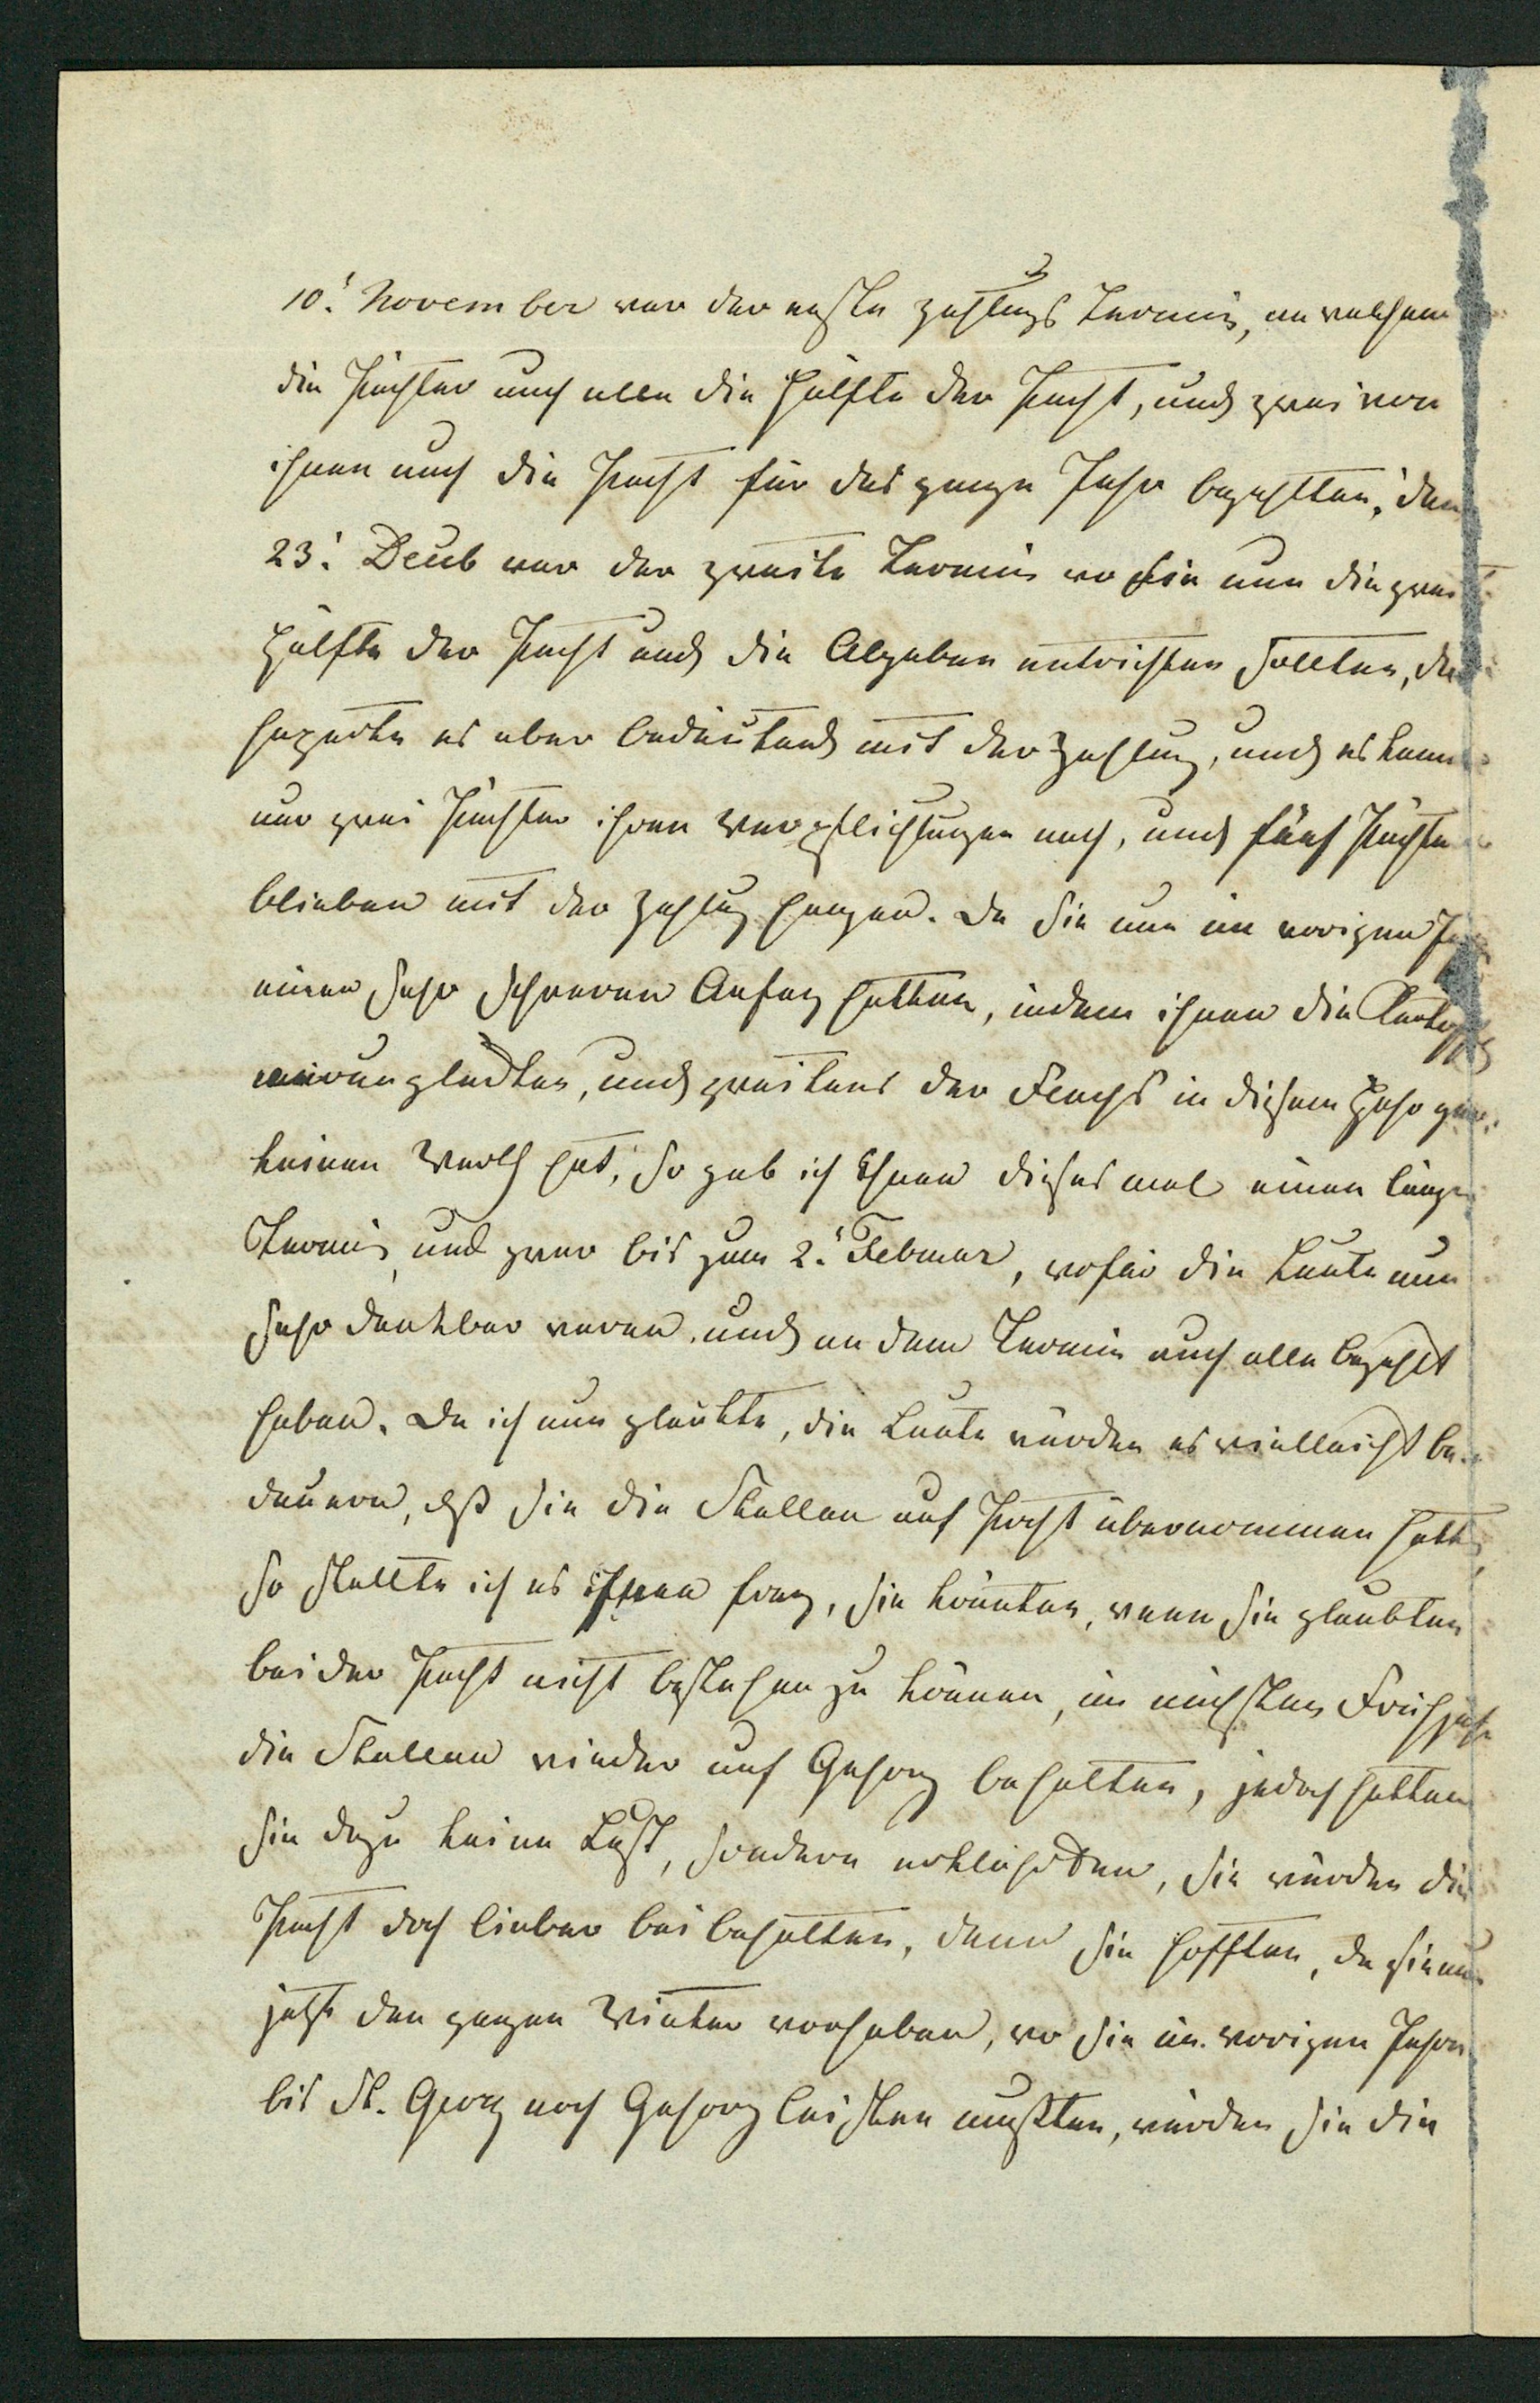 10.' November war der erste Zahlungs Termin, an welchem
die Pächter auch alle die Hälfte der Pacht, und zwei von
ihnen auch die Pacht für das ganze Jahr bezahlten, den
23.' war der zweite Termin wo sie nun die zweite
Hälfte der Pacht und die Abgaben entrichten sollten, da
haperte es aber bedeutend mit der Zahlung, und es kamen
nur zwei Pächter ihren Verpflichtungen nach, und fünf Pächter
blieben mit der Zahlung hangen. Da sie nun im vorigen Jahr
einen sehr schweren Anfang hatten, indem ihnen die Kartoffeln
verunglückten, und zweitens der Flachs in diesem Jahr gar
keinen Werth hat, so gab ich Ihnen dieses mal einen langen
Termin, und zwar bis zum 2.' Februar, wofür die Leute nun
sehr dankbar waren, und an dem Termin auch alle bezahlt
haben. Da ich nun glaubte, die Leute würden es vielleicht be-
dauern, daß sie die Stellen auf Pacht übernommen hatten,
so stellte ich es ihnen frey, sie könnten, wenn sie glaubten
bei der Pacht nicht bestehen zu können, im nächsten Frühjahr
die Stellen wieder auf Gehorg behalten, jedoch hatten
sie dazu keine Lust, sondern erklärten, sie würden die
Pacht doch lieber bei behalten, denn sie hofften, da sie nun
jetzt den ganzen Winter vorhaben, wo sie im vorigen Jahre
bis St. Georg noch Gehorg leisten mußten, würden sie die